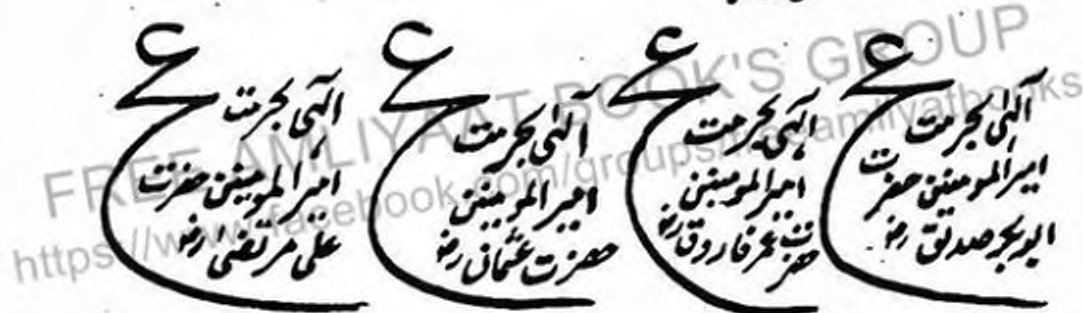 ع
الٰہی بحرمت
امیرالمومنین حضرت
ابوبکر صدیق رض
ع
الٰہی بحرمت
امیرالمومنین
حضرت عمر فاروق رض
ع
الٰہی بحرمت
امیرالمومنین
حضرت عثمان رض
ع
الٰہی بحرمت
امیرالمومنین حضرت
علی مرتضیٰ رض
FREE AMLIYAAT BOOK'S GROUP
https://www.facebook.com/groups/freeamliyatbooks